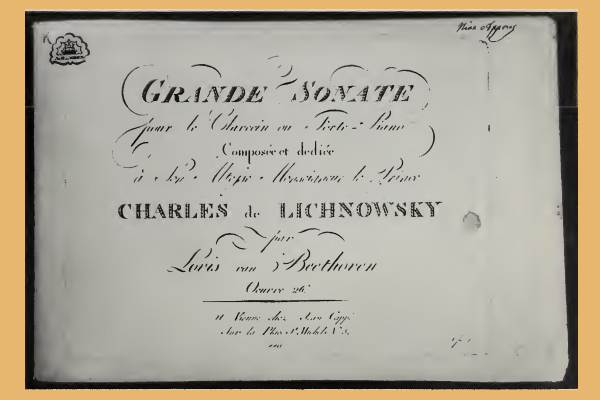 GRANDE SONATE
pour le Clavecin ou Forte-Piano
Composée et dediée
à Son Altesse Monseigneur le Prince
CHARLES de LICHNOWSKY
par
Louis van Beethoven
Oeuvre 26
à Vienne chez Jean Cappi
Sur la Place St Michele N° 5.